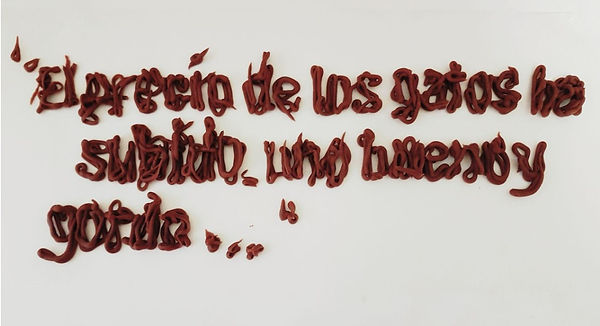 "El precio de los gatos ha
subido, uno bueno y
gordo..."